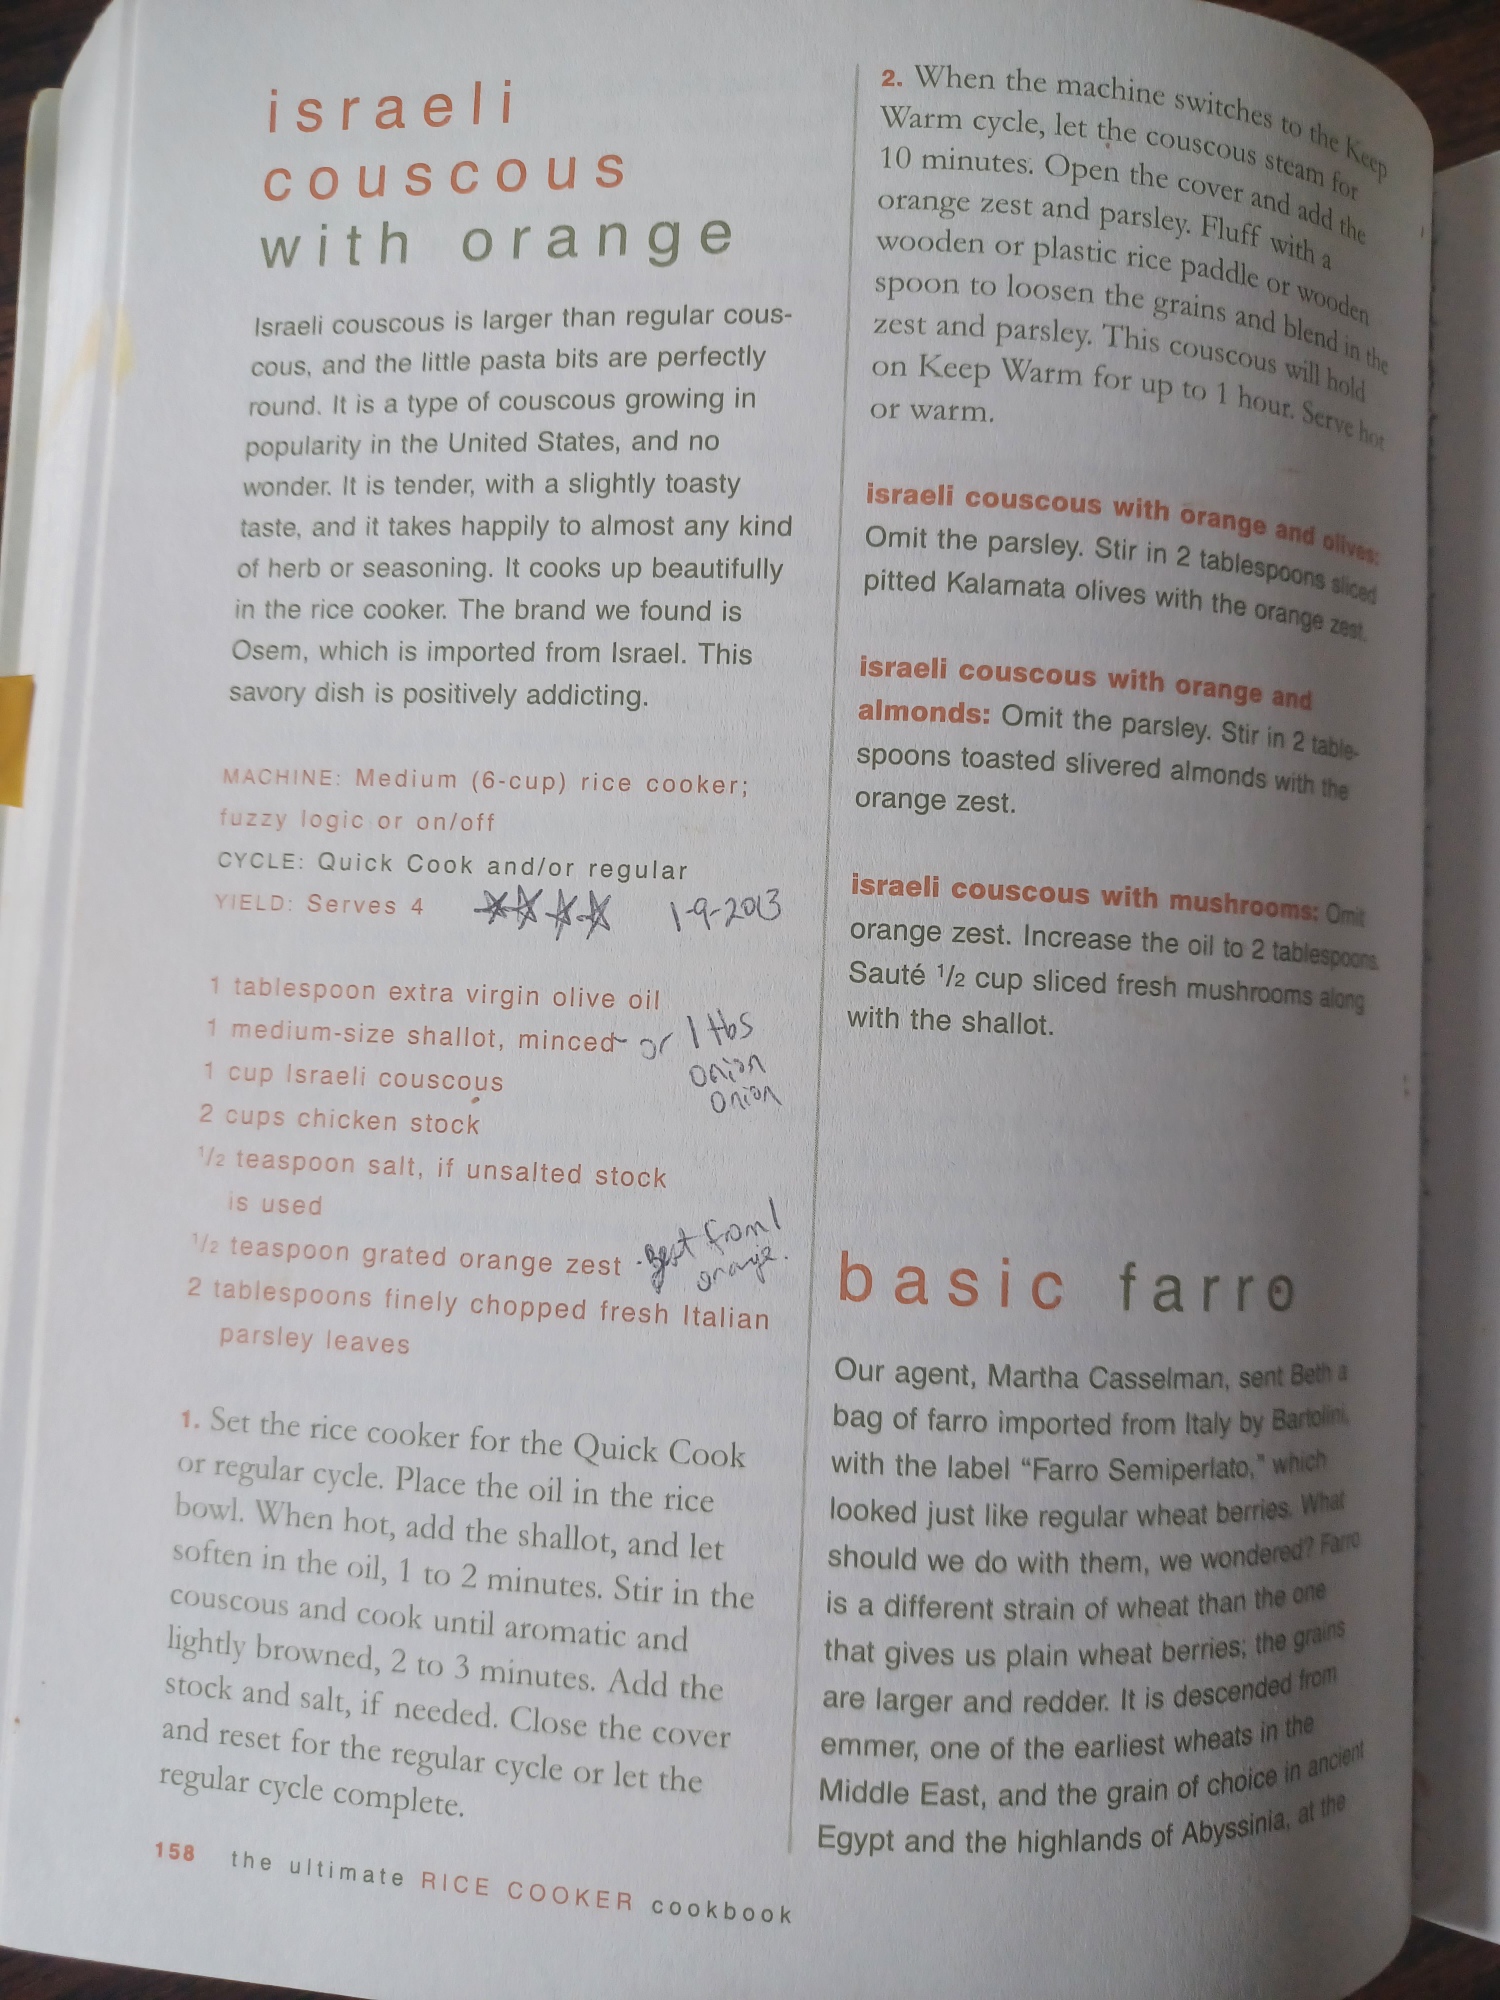 israeli
couscous
with orange
Israeli couscous is larger than regular cous-
cous, and the little pasta bits are perfectly
round. It is a type of couscous growing in
popularity in the United States, and no
wonder. It is tender, with a slightly toasty
taste, and it takes happily to almost any kind
of herb or seasoning. It cooks up beautifully
in the rice cooker. The brand we found is
Osem, which is imported from Israel. This
savory dish is positively addicting.
MACHINE: Medium (6-cup) rice cooker;
fuzzy logic or on/off
CYCLE: Quick Cook and/or regular
YIELD: Serves 4 ☆☆☆☆ 1-9-2013
1 tablespoon extra virgin olive oil
1 medium-size shallot, minced - or 1 tbs
onion
onion
1 cup Israeli couscous
2 cups chicken stock
1/2 teaspoon salt, if unsalted stock
is used
1/2 teaspoon grated orange zest - Best from 1
orange.
2 tablespoons finely chopped fresh Italian
parsley leaves
1. Set the rice cooker for the Quick Cook
or regular cycle. Place the oil in the rice
bowl. When hot, add the shallot, and let
soften in the oil, 1 to 2 minutes. Stir in the
couscous and cook until aromatic and
lightly browned, 2 to 3 minutes. Add the
stock and salt, if needed. Close the cover
and reset for the regular cycle or let the
regular cycle complete.
158 the ultimate RICE COOKER cookbook
2. When the machine switches to the Keep
Warm cycle, let the couscous steam for
10 minutes. Open the cover and add the
orange zest and parsley. Fluff with a
wooden or plastic rice paddle or wooden
spoon to loosen the grains and blend in the
zest and parsley. This couscous will hold
on Keep Warm for up to 1 hour. Serve hot
or warm.
israeli couscous with orange and olives:
Omit the parsley. Stir in 2 tablespoons sliced
pitted Kalamata olives with the orange zest.
israeli couscous with orange and
almonds: Omit the parsley. Stir in 2 table-
spoons toasted slivered almonds with the
orange zest.
israeli couscous with mushrooms: Omit
orange zest. Increase the oil to 2 tablespoons.
Sauté 1/2 cup sliced fresh mushrooms along
with the shallot.
basic farro
Our agent, Martha Casselman, sent Beth a
bag of farro imported from Italy by Bartolini,
with the label “Farro Semiperlato,” which
looked just like regular wheat berries. What
should we do with them, we wondered? Farro
is a different strain of wheat than the one
that gives us plain wheat berries; the grains
are larger and redder. It is descended from
emmer, one of the earliest wheats in the
Middle East, and the grain of choice in ancient
Egypt and the highlands of Abyssinia, at the